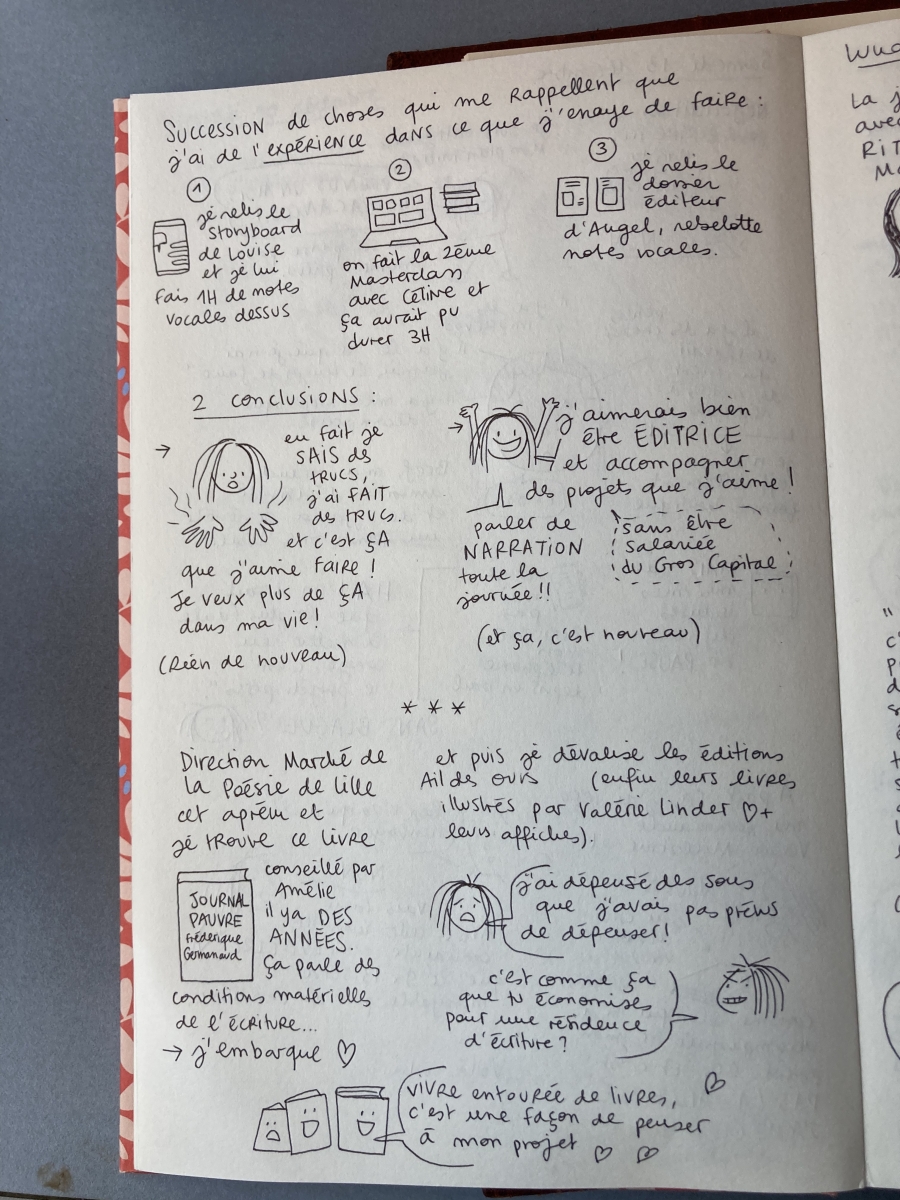 Succession de choses qui me rappellent que
j'ai de l'expérience dans ce que j'essaye de faire :
1
je relis le
storyboard
de Louise
et je lui
fais 1H de notes
vocales dessus
2
on fait la 2ème
Masterclass
avec Céline et
ça aurait pu
durer 3H
3
je relis le
dossier
éditeur
d'Angel, rebelotte
notes vocales.
2 conclusions :
→ en fait je
SAIS des
trucs,
j'ai FAIT
des trucs.
et c'est ÇA
que j'aime faire !
Je veux plus de ÇA
dans ma vie !
(Rien de nouveau)
→ j'aimerais bien
être ÉDITRICE
et accompagner
des projets que j'aime !
parler de
NARRATION
toute la
journée !!
sans être
salariée
du Gros Capital
(et ça, c'est nouveau)
* * *
Direction Marché de
la Poésie de Lille
cet aprèm et
je trouve ce livre
JOURNAL
PAUVRE
Frédérique
Germanaud
conseillé par
Amélie
il y a DES
ANNÉES.
ça parle des
conditions matérielles
de l'écriture...
→ j'embarque ♡
et puis je dévalise les éditions
Ail des ours (enfin leurs livres
illustrés par Valérie Linder ♡ +
leurs affiches).
j'ai dépensé des sous
que j'avais pas prévus
de dépenser !
c'est comme ça
que tu économises
pour une résidence
d'écriture ?
vivre entourée de livres,
c'est une façon de penser
à mon projet ♡ ♡ ♡